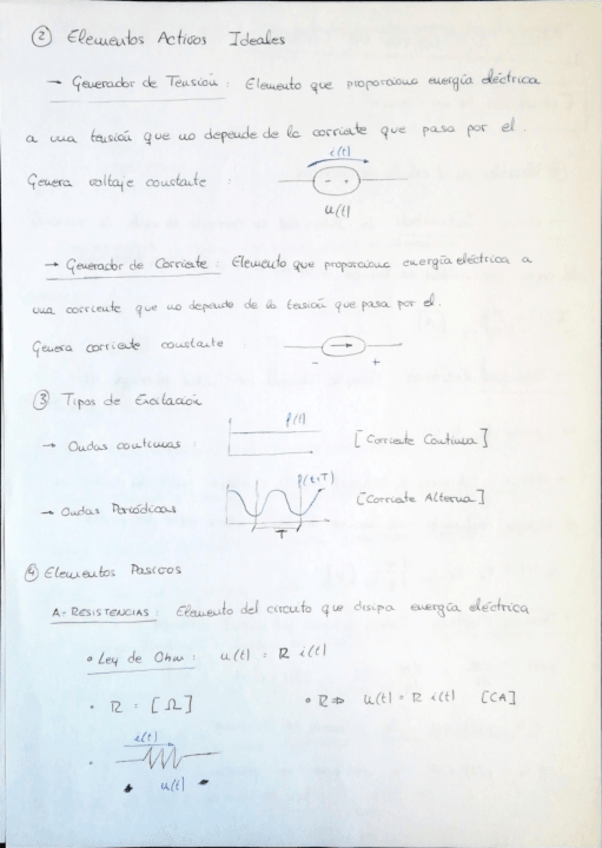 ② Elementos Activos Ideales
→ Generador de Tensión : Elemento que proporciona energía eléctrica
a una tensión que no depende de la corriente que pasa por el.
Genera voltaje constante :
i(t)
- +
u(t)
→ Generador de Corriente : Elemento que proporciona energía eléctrica a
una corriente que no depende de la tensión que pasa por el.
Genera corriente constante
- +
③ Tipos de Excitación
→ Ondas continuas : f(t) [Corriente Continua]
→ Ondas Periódicas f(t+T) [Corriente Alterna]
T
④ Elementos Pasivos
A- RESISTENCIAS : Elemento del circuito que disipa energía eléctrica
• Ley de Ohm : u(t) = R i(t)
• R = [Ω] • R ⇒ u(t) = R i(t) [CA]
i(t)
u(t)